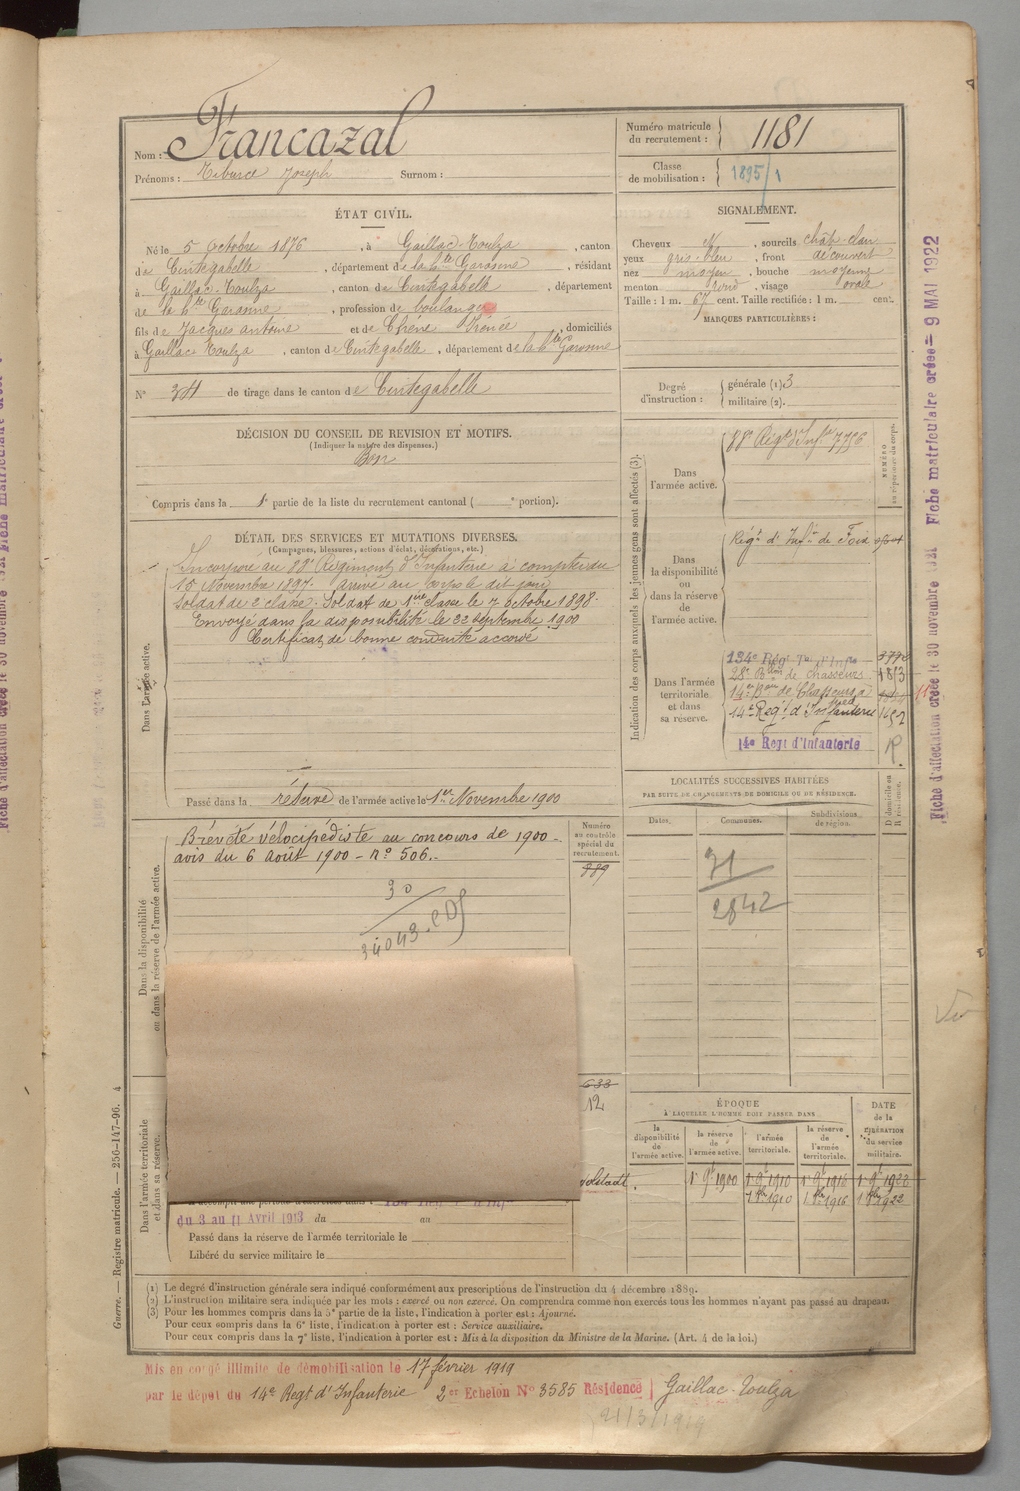 Nom : Francazal
Prénoms : Tiburce Joseph Surnom :
Numéro matricule du recrutement : 1181
Classe de mobilisation : 1895/1
ÉTAT CIVIL.
Né le 5 Octobre 1876, à Gaillac-Toulza, canton
de Cintegabelle, département de la Hte Garonne, résidant
à Gaillac-Toulza, canton de Cintegabelle, département
de la Hte Garonne, profession de boulanger
fils de Jacques antoine et de Irénée, domiciliés
à Gaillac Toulza, canton de Cintegabelle, département de la Hte Garonne
N° 34 de tirage dans le canton de Cintegabelle
SIGNALEMENT.
Cheveux N, sourcils chât-clair
yeux gris-bleu, front découvert
nez moyen, bouche moyenne
menton rond, visage ovale
Taille : 1 m. 67 cent. Taille rectifiée : 1 m. cent.
MARQUES PARTICULIÈRES :
Degré d'instruction : générale (1) 3
militaire (2).
DÉCISION DU CONSEIL DE REVISION ET MOTIFS.
(Indiquer la nature des dispenses.)
Bon
Compris dans la 1e partie de la liste du recrutement cantonal ( e portion).
DÉTAIL DES SERVICES ET MUTATIONS DIVERSES.
(Campagnes, blessures, actions d'éclat, décorations, etc.)
Dans l'armée active.
Incorporé au 88e Régiment d'Infanterie à compter du
15 Novembre 1897. arrivé au corps le dit jour
Soldat de 2e classe. Soldat de 1ère classe le 7 octobre 1898.
Envoyé dans la disponibilité le 22 septembre 1900
Certificat de bonne conduite accordé
Passé dans la réserve de l'armée active le 1er Novembre 1900
Dans la disponibilité ou dans la réserve de l'armée active.
Breveté vélocipédiste au concours de 1900-
avis du 6 Août 1900 - n° 506.
30
Numéro au contrôle spécial du recrutement.
889
633
12
Indication des corps auxquels les jeunes gens sont affectés (3).
NUMÉRO au répertoire du corps.
Dans l'armée active.
88e Régt d'Infie 7756
Dans la disponibilité ou dans la réserve de l'armée active.
Régt d'Infie de Foix
Dans l'armée territoriale et dans sa réserve.
134e Régt Tal d'Infie 3778
28e Bllon de chasseurs 1813
14e Bon de Chasseurs à pied
14e Régt d'Infanterie 1652
14e Regt d'Infanterie R.
LOCALITÉS SUCCESSIVES HABITÉES
PAR SUITE DE CHANGEMENTS DE DOMICILE OU DE RÉSIDENCE.
Dates. Communes. Subdivisions de région. D domicile ou R résidence.
31
2842
ÉPOQUE
À LAQUELLE L'HOMME DOIT PASSER DANS
la disponibilité de l'armée active. la réserve de l'armée active. l'armée territoriale. la réserve de l'armée territoriale. DATE de la LIBÉRATION du service militaire.
1er 9bre 1900 1er 9bre 1910 1er 9bre 1916 1er 9bre 1922
1er 8bre 1910 1er 8bre 1916 1er 8bre 1922
Dans l'armée territoriale et dans sa réserve.
du 3 au 11 Avril 1913 du au
Passé dans la réserve de l'armée territoriale le
Libéré du service militaire le
(1) Le degré d'instruction générale sera indiqué conformément aux prescriptions de l'instruction du 4 décembre 1889.
(2) L'instruction militaire sera indiquée par les mots : exercé ou non exercé. On comprendra comme non exercés tous les hommes n'ayant pas passé au drapeau.
(3) Pour les hommes compris dans la 5e partie de la liste, l'indication à porter est : Ajourné.
Pour ceux compris dans la 6e liste, l'indication à porter est : Service auxiliaire.
Pour ceux compris dans la 7e liste, l'indication à porter est : Mis à la disposition du Ministre de la Marine. (Art. 4 de la loi.)
Mis en congé illimité de démobilisation le 17 février 1919
par le dépôt du 14e Regt d'Infanterie 2er Echelon N° 3585 Résidence Gaillac-Toulza
21/3/1919
Guerre. — Registre matricule. — 256-147-96. 4
Fiche d'affectation créée le 30 novembre 1921 Fiche matriculaire créée = 9 MAI 1922